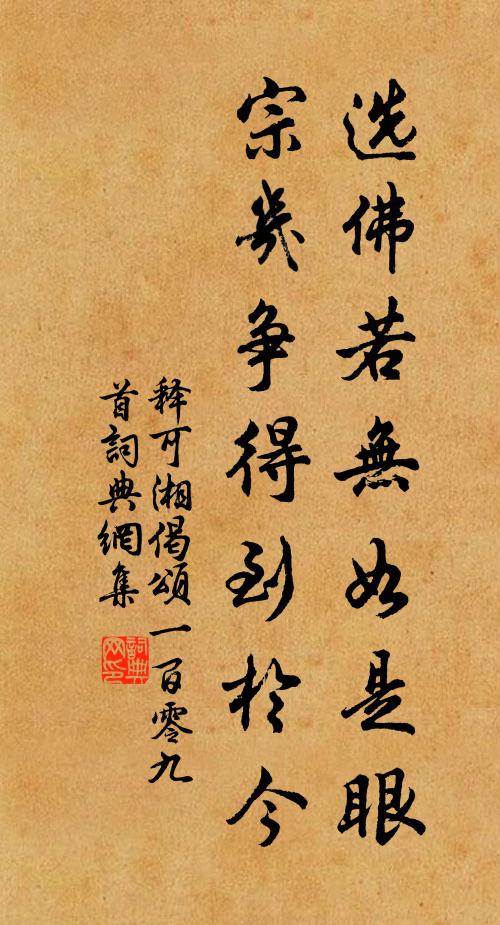 选佛若無如是眼
宗幾争得到於今
释可湘偈頌一百零九
首詞典網集
詞典
网印